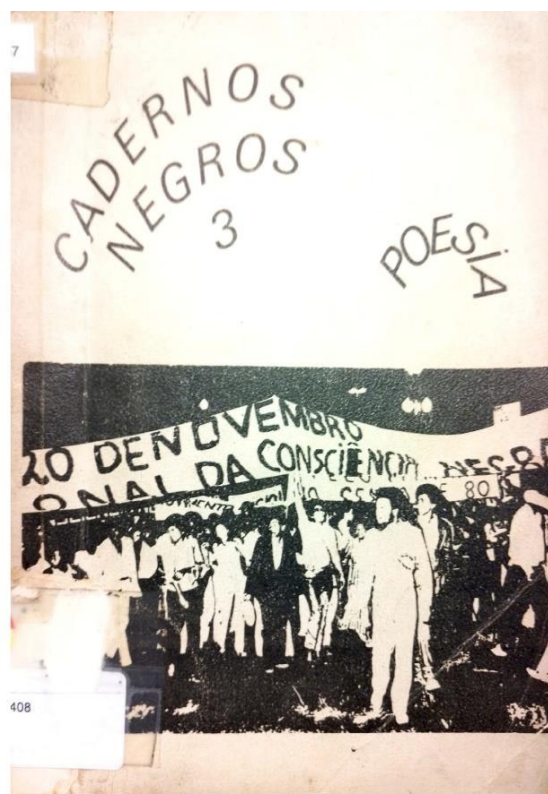 7
CADERNOS
NEGROS
3
POESIA
20 DE NOVEMBRO
ONAL DA CONSCIÊNCIA NEGR
80
408